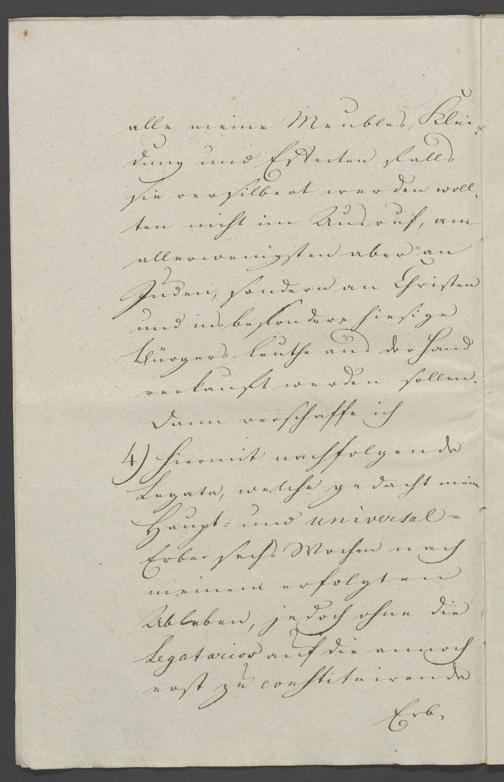 alle meine Meubles, Klei-
dung und Effecten falls
sie versilbert werden woll-
ten nicht im Ausruf, am
allerwenigsten aber an
Juden, sondern an Christen
und insbesondere hiesige
Bürgers leuthe aus der Hand
verkauft werden sollen.
Dann verschaffe ich
4) hiermit nachfolgende
Legata, welche gedacht mein
Haupt- und universal-
Erbe sechs Wochen nach
meinem erfolgten
Ableben, jedoch ohne die
Legatarios auf die annoch
erst zu constituirende
Erb-